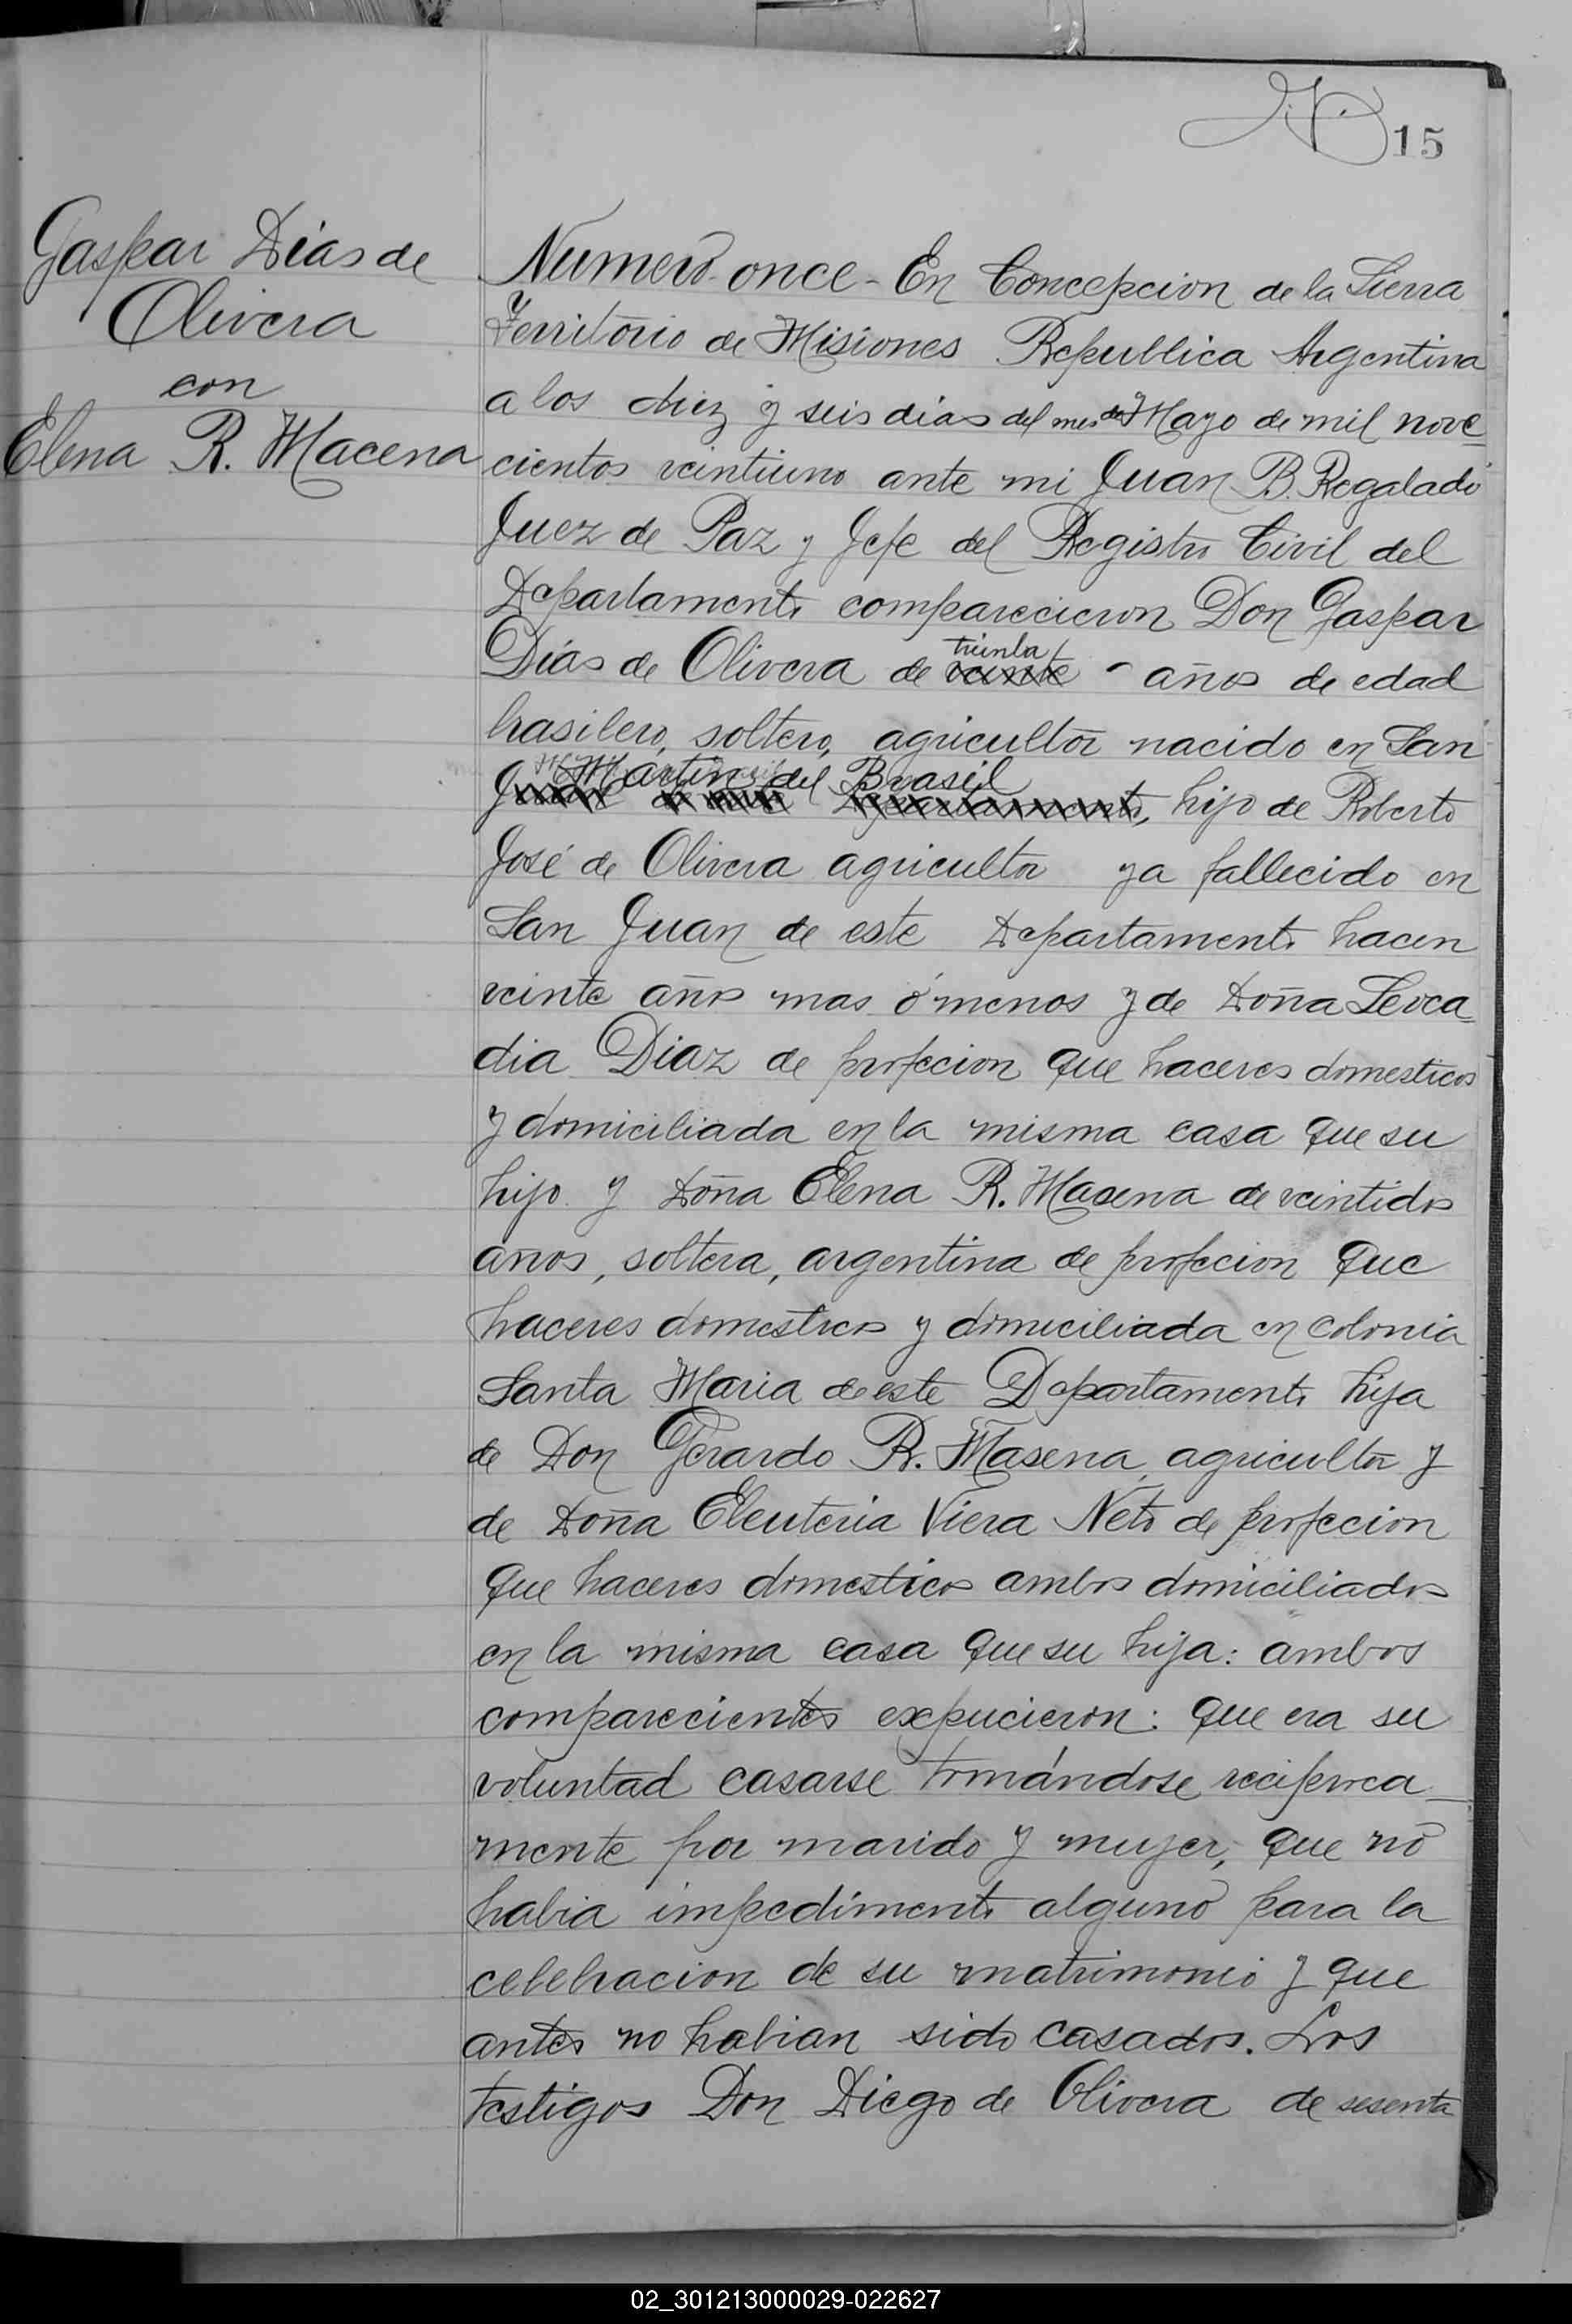 15
Gaspar Dias de
Olivera
con
Elena R. Macena
Numero once - En Concepcion de la Sierra
Territorio de Misiones Republica Argentina
a los diez y seis dias del mes de Mayo de mil nove
cientos veintiuno ante mi Juan B. Regalado
Juez de Paz y Jefe del Registro Civil del
Departamento comparecieron Don Gaspar
treinta
Dias de Olivera de veinte - años de edad
brasilero, soltero, agricultor nacido en San
Martin del Brasil
Juan de este Departamento, hijo de Roberto
José de Olivera agricultor ya fallecido en
San Juan de este Departamento hacen
veinte años mas ó menos y de Doña Leoca
dia Diaz de profecion que haceres domesticos
y domiciliada en la misma casa que su
hijo y Doña Elena R. Masena de veintidos
años, soltera, argentina de profecion que
haceres domesticos y domiciliada en colonia
Santa Maria de este Departamento hija
de Don Gerardo R. Masena, agricultor y
de Doña Eleuteria Viera Neto de profecion
que haceres domesticos ambos domiciliados
en la misma casa que su hija: ambos
comparecientes expucieron: que era su
voluntad casarse tomándose reciproca_
mente por marido y mujer, que no
habia impedimento alguno para la
celebracion de su matrimonio y que
antes no habian sido casados. Los
testigos Don Diego de Olivera de sesenta
02_301213000029-022627